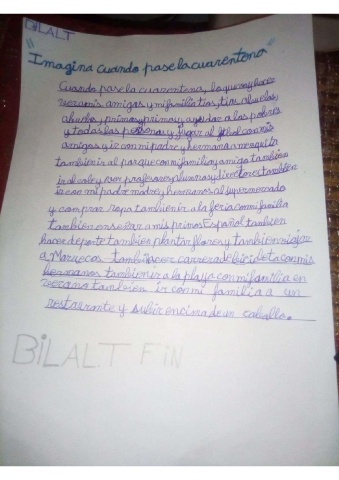 BILALT
"Imagina cuando pase la cuarentena"
Cuando pase la cuarentena, lo que voy hacer
ver a mis amigos y mi familia tios, tias, abuelos,
abuela, primos y primas y ayudar a los pobres
y todas las personas y jugar al futbol con mis
amigos y ir con mi padre y hermano a mezquita
tambien ir al parque con mi familia y amigos tambien
ir al cole y ver profesores alumnos y director tambien
ir con mi padre madre y hermanos al supermercado
y comprar ropa tambien ir a la feria con mi familia
tambien enseñar a mis primos Español tambien
hacer deporte tambien plantar flores y tambien viajar
a Marrecos tambien hacer carrera de bicicleta con mis
hermanos tambien ir a la playa con mi familia en
verano tambien ir con mi familia a un
restaurante y subir encima de un caballo.
BILALT FIN